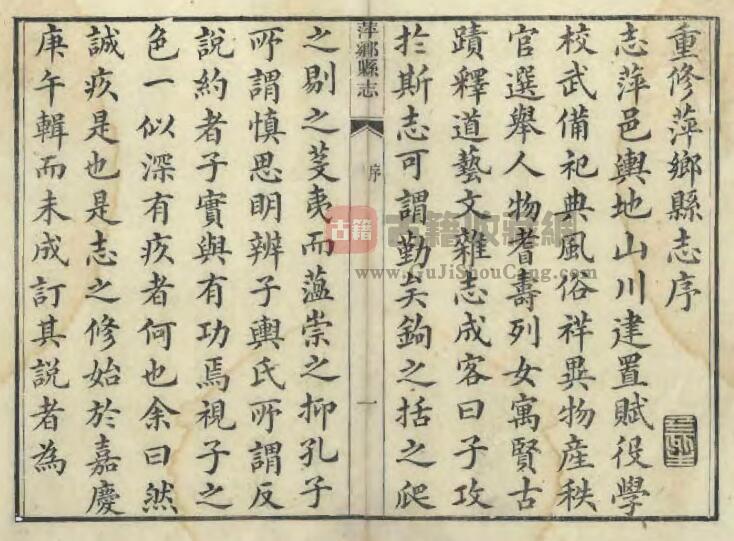 重修萍鄉縣志序
志萍邑輿地山川建置賦役學
校武備祀典風俗祥異物產秩
官選舉人物耆壽列女寓賢古
蹟釋道藝文雜志成客曰子攻
扵斯志可謂勤矣鉤之括之爬
萍鄉縣志
序
一
之剔之芟夷而薀崇之抑孔子
所謂慎思明辨子輿氏所謂反
說約者子實與有功焉視子之
色一似深有疚者何也余曰然
誠疚是也是志之修始於嘉慶
庚午輯而未成訂其説者為
古籍
古籍收藏網
www.GuJiShouCang.com